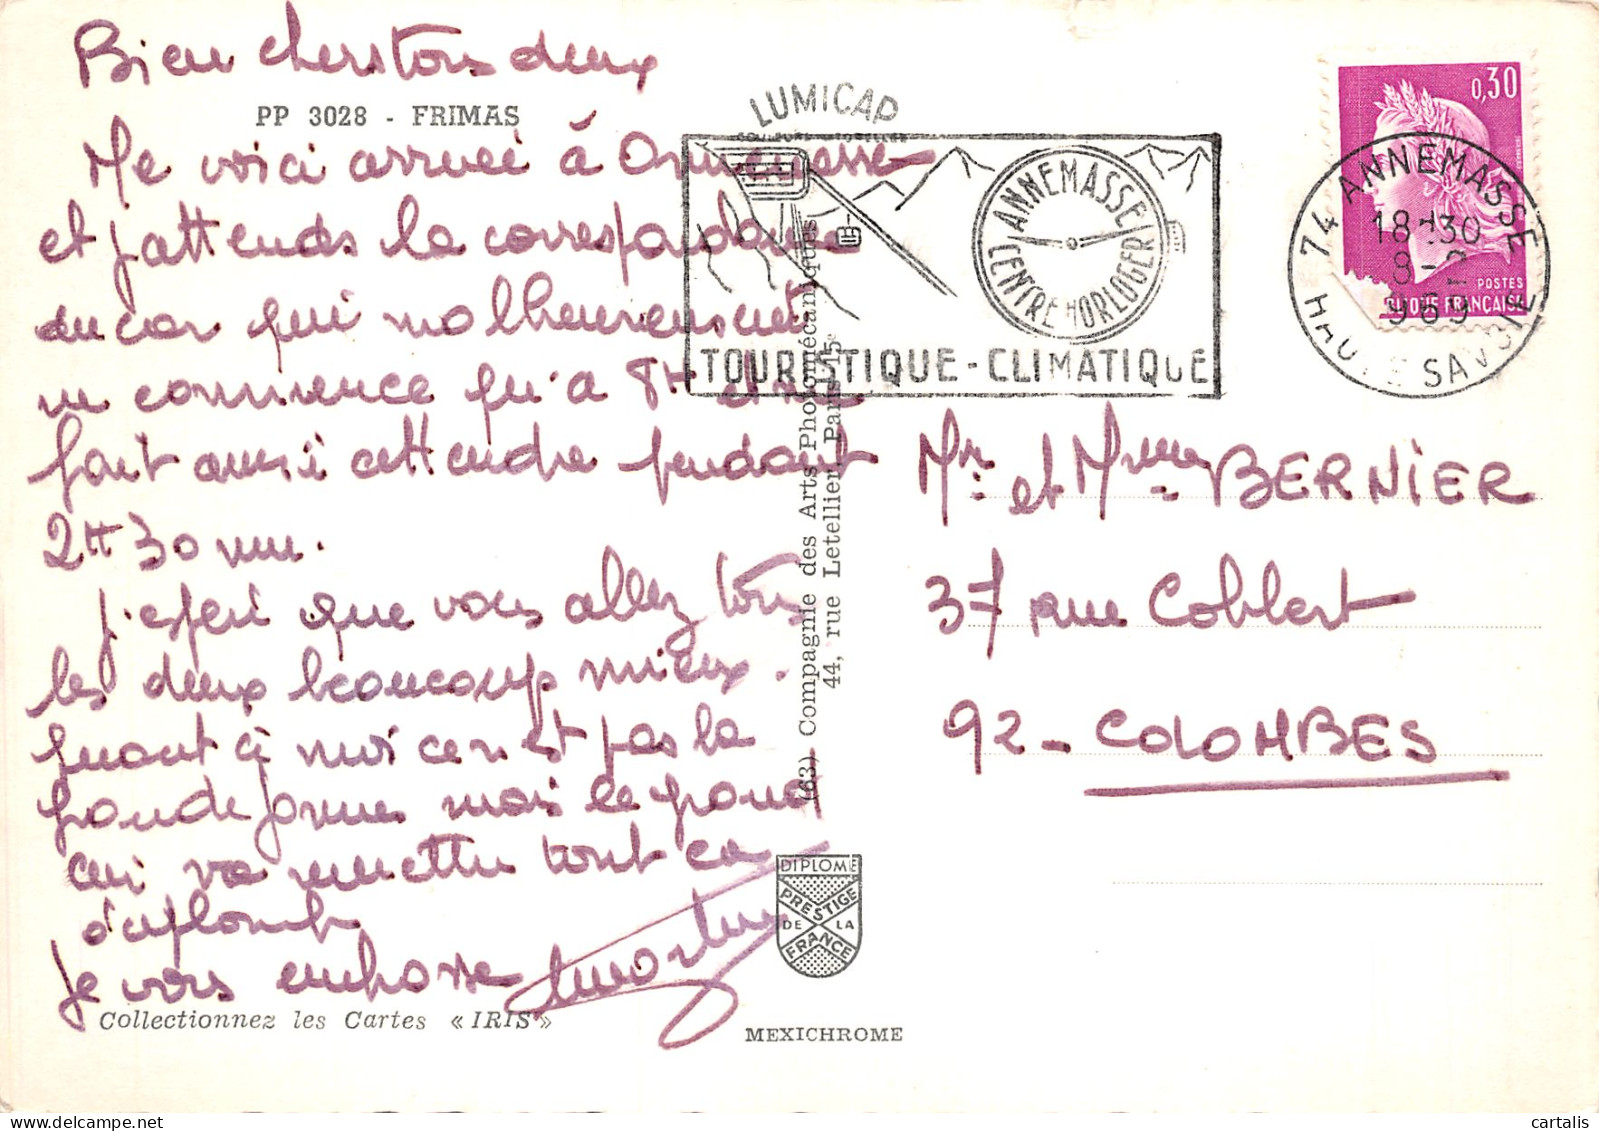 Bien chers tous deux
PP 3028 - FRIMAS
Me voici arrivée à Annemasse
et j'attends la correspondance
du car qui malheureusement
ne commence qu'à 8H et me
fait ainsi attendre pendant
2H 30 mn.
J'espère que vous allez tous
les deux beaucoup mieux.
Quant à moi ce n'est pas la
grande forme mais le grand
air va remettre tout ça
d'aplomb
Je vous embrasse
Collectionnez les Cartes « IRIS »
(63) Compagnie des Arts Photomécaniques
44, rue Letellier Paris 15e
DIPLOME
PRESTIGE
DE LA
FRANCE
MEXICHROME
LUMICAP
ANNEMASSE
CENTRE HORLOGER
TOURISTIQUE - CLIMATIQUE
0,30
POSTES
74 ANNEMASSE
18H30
8 - 2
1969
HAUTE SAVOIE
Mr. et Mme BERNIER
37 rue Colbert
92 - COLOMBES
cartalis
delcampe.net